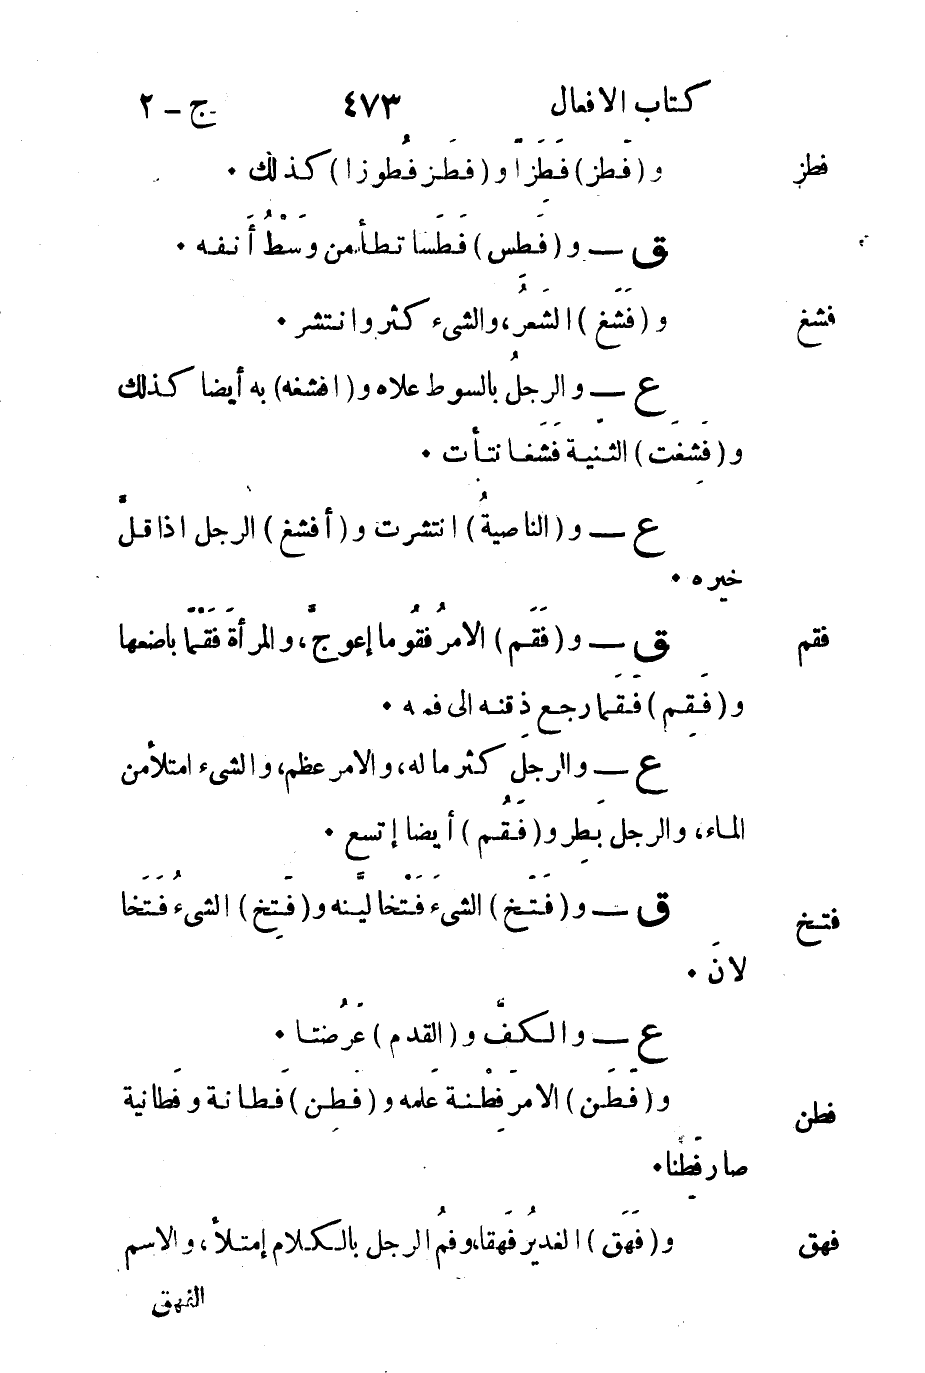 كتاب الافعال ٤٧٣ ج - ٢
فطز و ( فَطز ) فَطَِزاً و ( فطَز فُطوزا ) كذلك •
ق — و ( فَطَس ) فَطَسا تطأمن وَسْطُ أَنفه •
فشغ و ( فَشَغ ) الشعَرُ، والشىء كثر وانتشر •
ع — والرجلُ بالسوط علاه و ( افشغه ) به أيضا كذلك
و ( فَشِغَت ) الثنيّة فَشَغا نتأت •
ع — و ( الناصيةُ ) انتشرت و ( أفشغ ) الرجل اذا قلّ
خيره •
فقم ق — و ( فَقَم ) الامرُ فقُوما إعوجّ، والمرأة فَقْمًا باضعها
و ( فَقِم ) فَقَما رجع ذقنه الى فمه •
ع — والرجل كثر ماله، والامر عظم، والشىء امتلأ من
الماء، والرجل بَطِر و ( فَقُم ) أيضا إتسع •
فتخ ق — و ( فَتَخ ) الشىءَ فَتْخا ليّنه و ( فَتِخ ) الشىءُ فَتَخا
لانَ •
ع — والكفّ و ( القدم ) عَرُضتا •
فطن و ( فَطَن ) الامرَ فِطْنة عَلمه و ( فَطِن ) فَطانة وفَطانية
صار فَطِنًا •
فهق و ( فَهَق ) الغديرُ فَهقا، وفمُ الرجل بالكلام إمتلأ، والاسم
الفهق